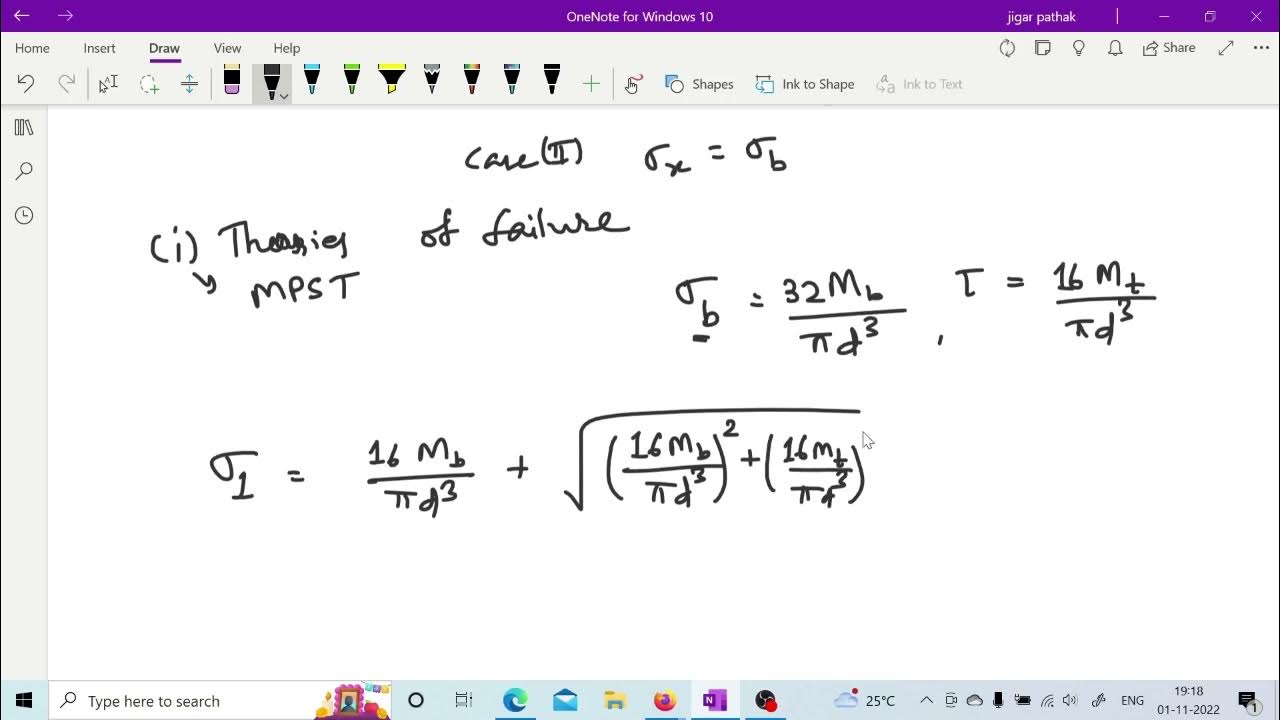 OneNote for Windows 10
jigar pathak
Home Insert Draw View Help
Share
Shapes
Ink to Shape
Ink to Text
case(II) σx = σb
(i) Theories of failure
↘ MPST
σb = 32Mb/πd³ , τ = 16 Mt/πd³
σ1 = 16 Mb/πd³ + √((16Mb/πd³)² + (16Mt/πd³)
Type here to search
25°C
ENG
19:18
01-11-2022
1